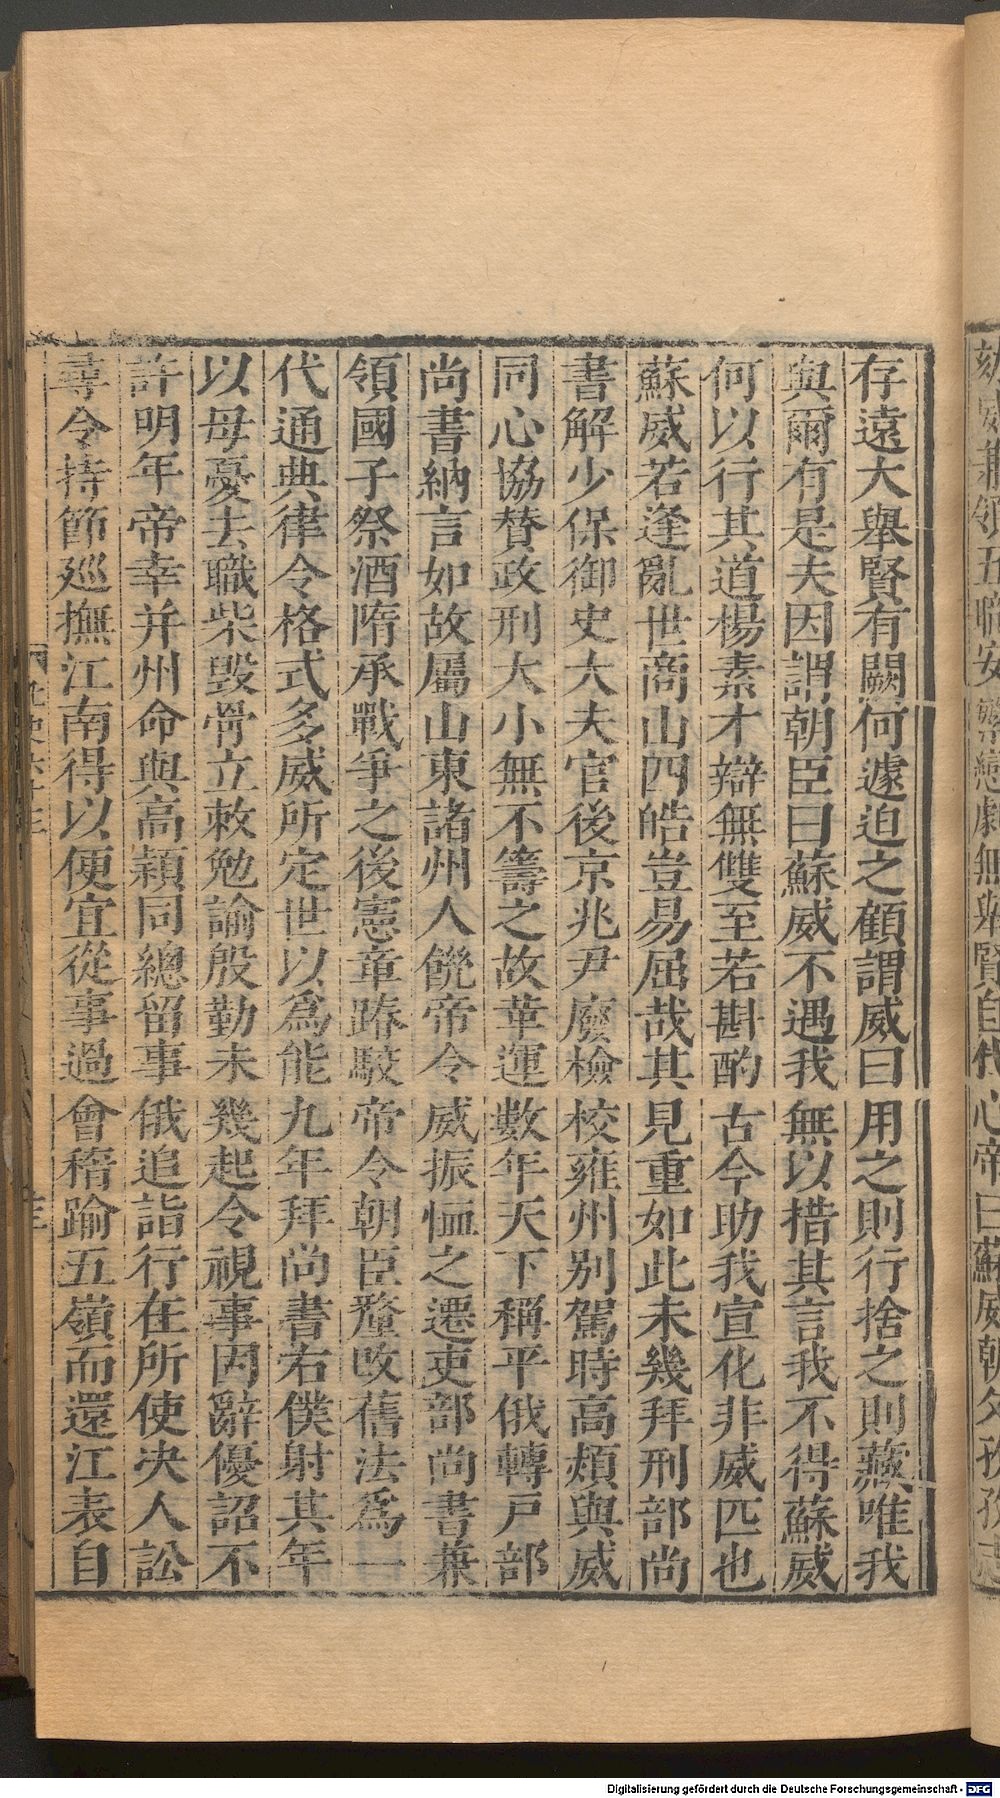 存遠大舉賢有闕何遽迫之顧謂威曰用之則行捨之則藏唯我
與爾有是夫因謂朝臣曰蘇威不遇我無以措其言我不得蘇威
何以行其道楊素才辯無雙至若斟酌古今助我宣化非威匹也
蘇威若逢亂世商山四皓豈易屈哉其見重如此未幾拜刑部尚
書解少保御史大夫官後京兆尹廢檢校雍州別駕時高熲與威
同心協賛政刑大小無不籌之故革運數年天下稱平俄轉戸部
尚書納言如故屬山東諸州人饑帝令威振恤之遷吏部尚書兼
領國子祭酒隋承戰爭之後憲章踳駁帝令朝臣釐改舊法爲一
代通典律令格式多威所定世以爲能九年拜尚書右僕射其年
以母憂去職柴毀骨立敕勉諭殷勤未幾起令視事固辭優詔不
許明年帝幸并州命與高熲同總留事俄追詣行在所使决人訟
尋令持節廵撫江南得以便宜從事過會稽踰五嶺而還江表自
Digitalisierung gefördert durch die Deutsche Forschungsgemeinschaft - DFG